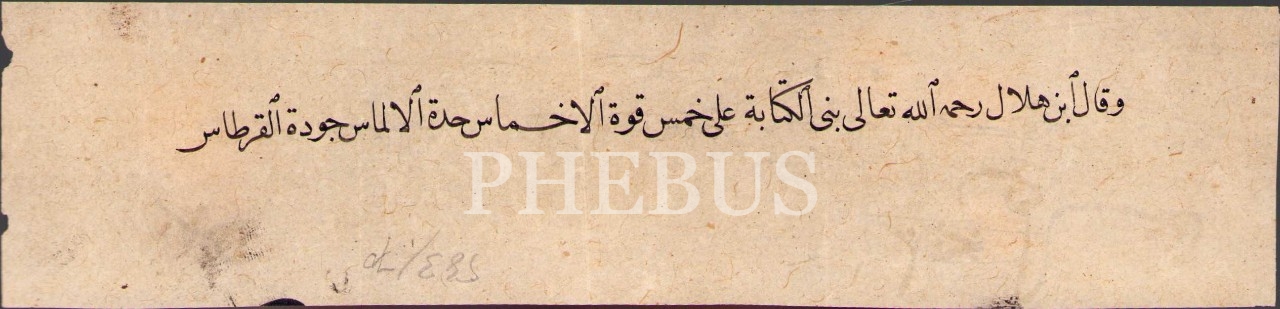 وقال ٱبن هلال رحمه ٱلله تعالى بنى ٱلكتابة على خمس قوة ٱلاخماس حدة ٱلالماس جودة ٱلقرطاس
PHEBUS